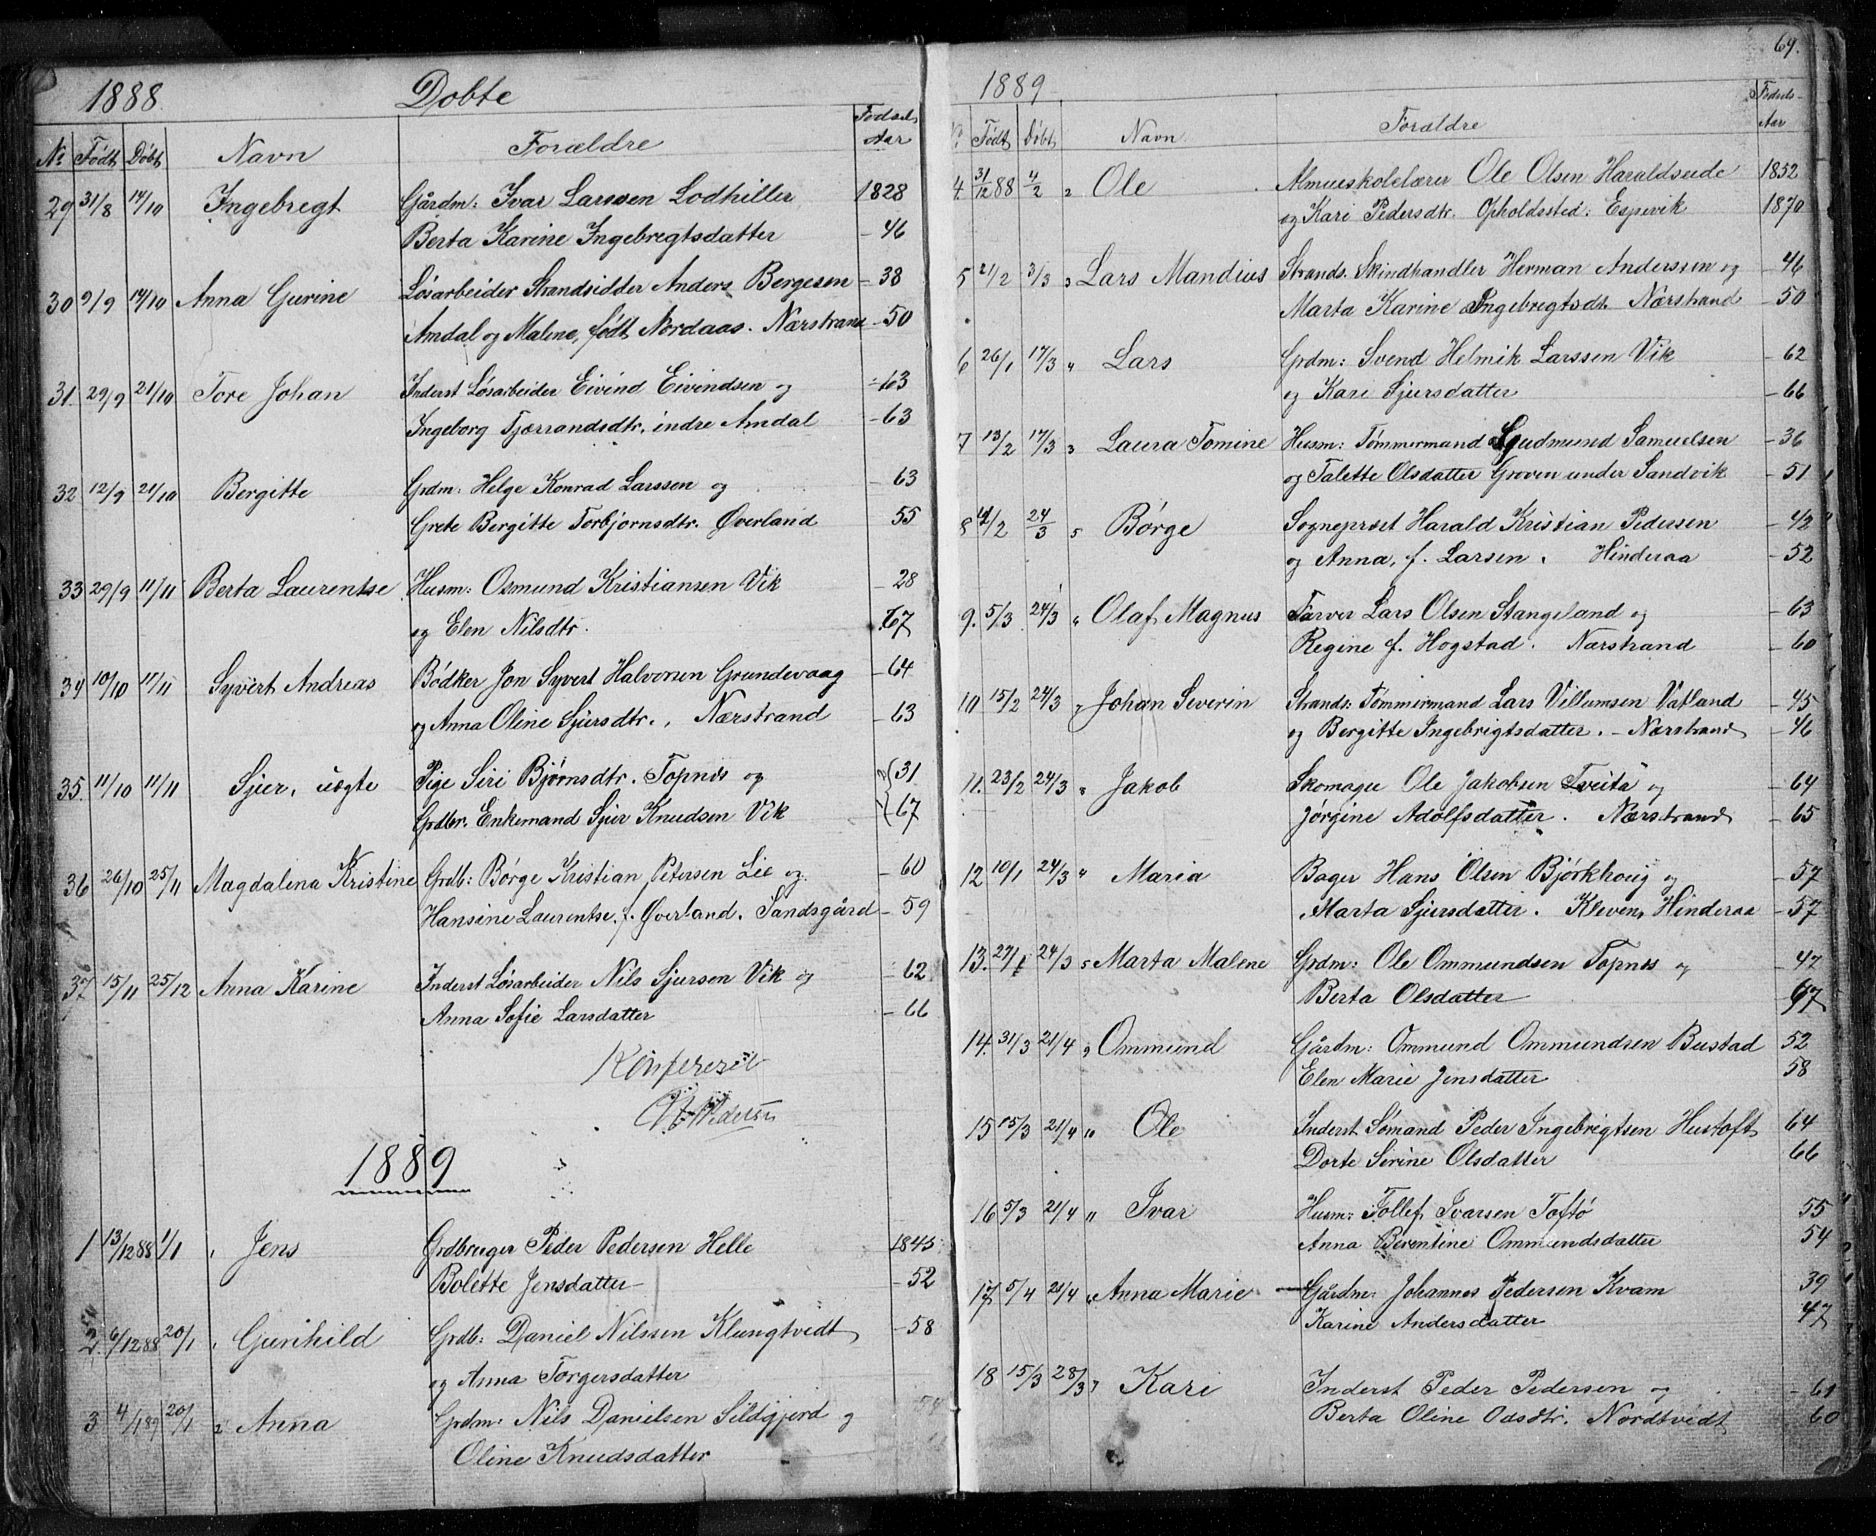 1888 Døbte
No Født Døbt Navn Forældre Fødsels Aar
29 31/8 14/10 Ingebregt Gårdm: Ivar Larssen Lodhiller 1828
Berta Karine Ingebregtsdatter - 46
30 9/9 14/10 Anna Gurine Løsarbeider Strandsidder Anders Bergesen - 38
Amdal og Malene, født Nordaas. Nærstrand - 50
31. 29/9 21/10 Tore Johan Inderst Løsarbeider Eivind Eivindsen og - 63
Ingeborg Tjærrandsdtr. indre Amdal - 63
32 12/9 21/10 Bergitte Grdm: Helge Konrad Larssen og - 63
Grete Bergitte Torbjornsdtr. Øverland 55
33 29/9 11/11 Berta Laurentse Husm: Osmund Kristiansen Vik - 28
og Elen Nilsdtr. 67
34 10/10 11/11 Syvert Andreas Bødker Jon Syvert Halvorsen Grundevaag - 64
og Anna Oline Sjursdtr., Nærstrand - 63
35. 11/10 11/11 Sjur, uegte Pige Siri Bjørnsdtr. Topnes og 31
Grdbr. Enkemand Sjur Knudsen Vik 67
36 26/10 25/11 Magdalina Kristine Grdb: Børge Kristian Petersen Lie og - 60
Hansine Laurentse, f. Øverland. Sandsgård - 59
37 15/11 25/12 Anna Karine Inderst Løsarbeider Nils Sjursen Vik og - 62
Anna Sofie Larsdatter - 66
Konfereret
1889
1 13/12 88 1/1 Jens Grdbruger Peder Pedersen Helle 1845
Bolette Jensdatter - 52
2. 6/12 88 20/1 Gunhild Grdb: Daniel Nilssen Klungtvedt - 58
og Anna Torgersdatter
3 4/1 89 20/1 Anna Grdm: Nils Danielsen Sildgjerd og
Oline Knudsdatter
69.
1889
No Født Døbt Navn Forældre Fødsels- Aar
4. 31/12 88 4/2 Ole Almueskolelærer Ole Olsen Haraldseide 1852
og Kari Pedersdtr. Opholdssted: Espevik 1870
5 21/2 3/3 Lars Mandius Strands. Skindhandler Herman Anderssen og - 46
Marta Karine Ingebregtsdt. Nærstrand - 50
6 26/1 17/3 Lars Grdm: Svend Helmik Larssen Vik - 62
og Kari Sjursdatter - 66
7 13/2 17/3 Laura Tomine Husm: Tømmermand Gudmund Samuelsen - 36
og Talette Olsdatter Groven under Sandvik - 51
8 14/2 24/3 Børge Sogneprest Harald Kristian Pedersen - 42
og Anna, f. Larsen. Hinderaa - 52
9. 5/3 24/3 Olaf Magnus Farver Lars Olsen Stangeland og - 63
Regine f. Hogstad. Nærstrand - 60
10 15/2 24/3 Johan Severin Strands: Tømmermand Lars Villumsen Vatland - 45
og Bergitte Ingebrigtsdatter. - Nærstrand - 46
11. 23/2 24/3 Jakob Skomager Ole Jakobsen Tveita og - 64
Jørgine Adolfsdatter. Nærstrand - 65
12 10/1 24/3 Maria Bager Hans Olsen Bjørkhoug og - 57
Marta Sjursdatter. Kleven, Hinderaa - 57
13. 27/1 24/3 Marta Malene Grdm: Ole Ommundsen Topnes og - 47
Berta Olsdatter 47
14. 31/3 21/4 Ommund Gårdm: Ommund Ommundsen Bustad 52
Elen Marie Jensdatter 58
15 15/3 21/4 Ole Inderst Sømand Peder Ingebrigtsen Hustoft 64
Dorte Serine Olsdatter 66
16 5/3 21/4 Ivar Husm: Tollef Ivarsen Toftø 55
Anna Berentine Ommundsdatter 54
17 5/4 21/4 Anna Marie Gårdm: Johannes Pedersen Kvam 39
Karine Andersdatter 47
18 15/3 28/3 Kari Inderst Peder Pedersen og - 61
Berta Oline Odsdtr. Nordtvedt 60